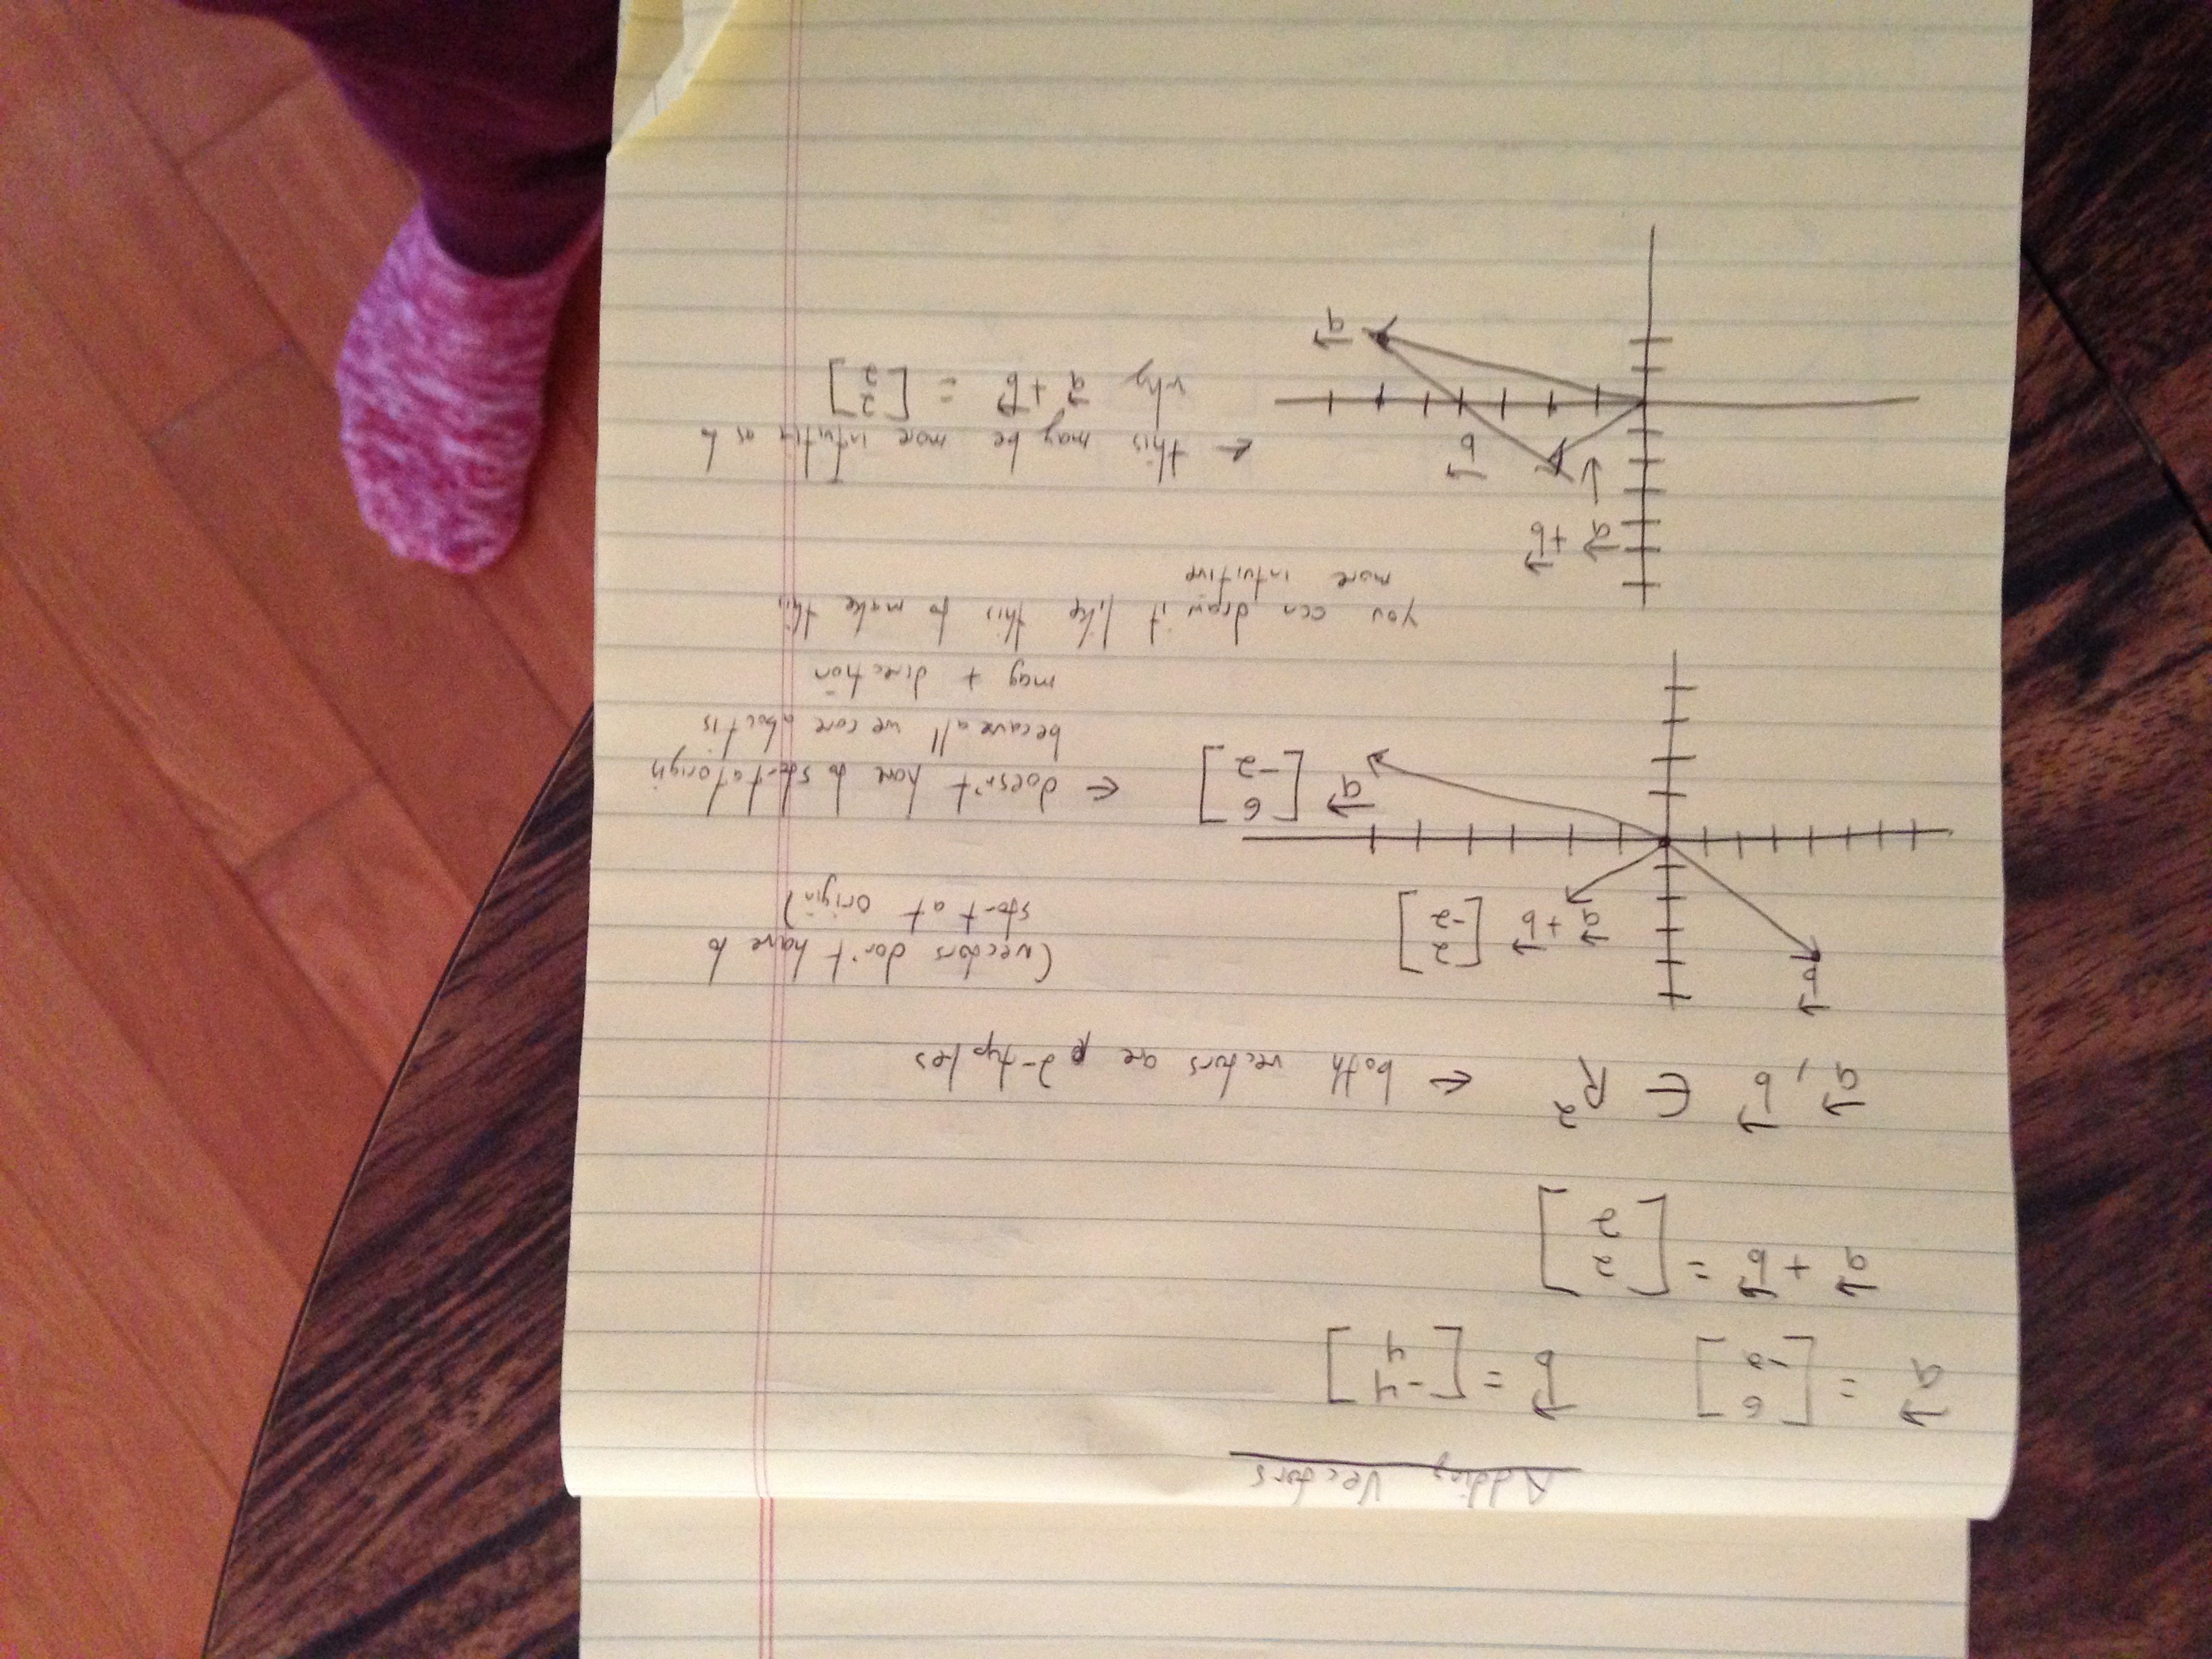 Adding Vectors
a⃗ = [6 -2] b⃗ = [-4 4]
a⃗ + b⃗ = [2 2]
a⃗, b⃗ ∈ R² ← both vectors are 2-tuples
b⃗
a⃗ + b⃗ [2 -2]
(vectors don't have to
start at origin)
a⃗ [6 -2]
← doesn't have to start at origin
because all we care about is
mag + direction
you can draw it like this to make this
more intuitive
a⃗ + b⃗
b⃗
a⃗
← this may be more intuitive as to
why a⃗ + b⃗ = [2 2]